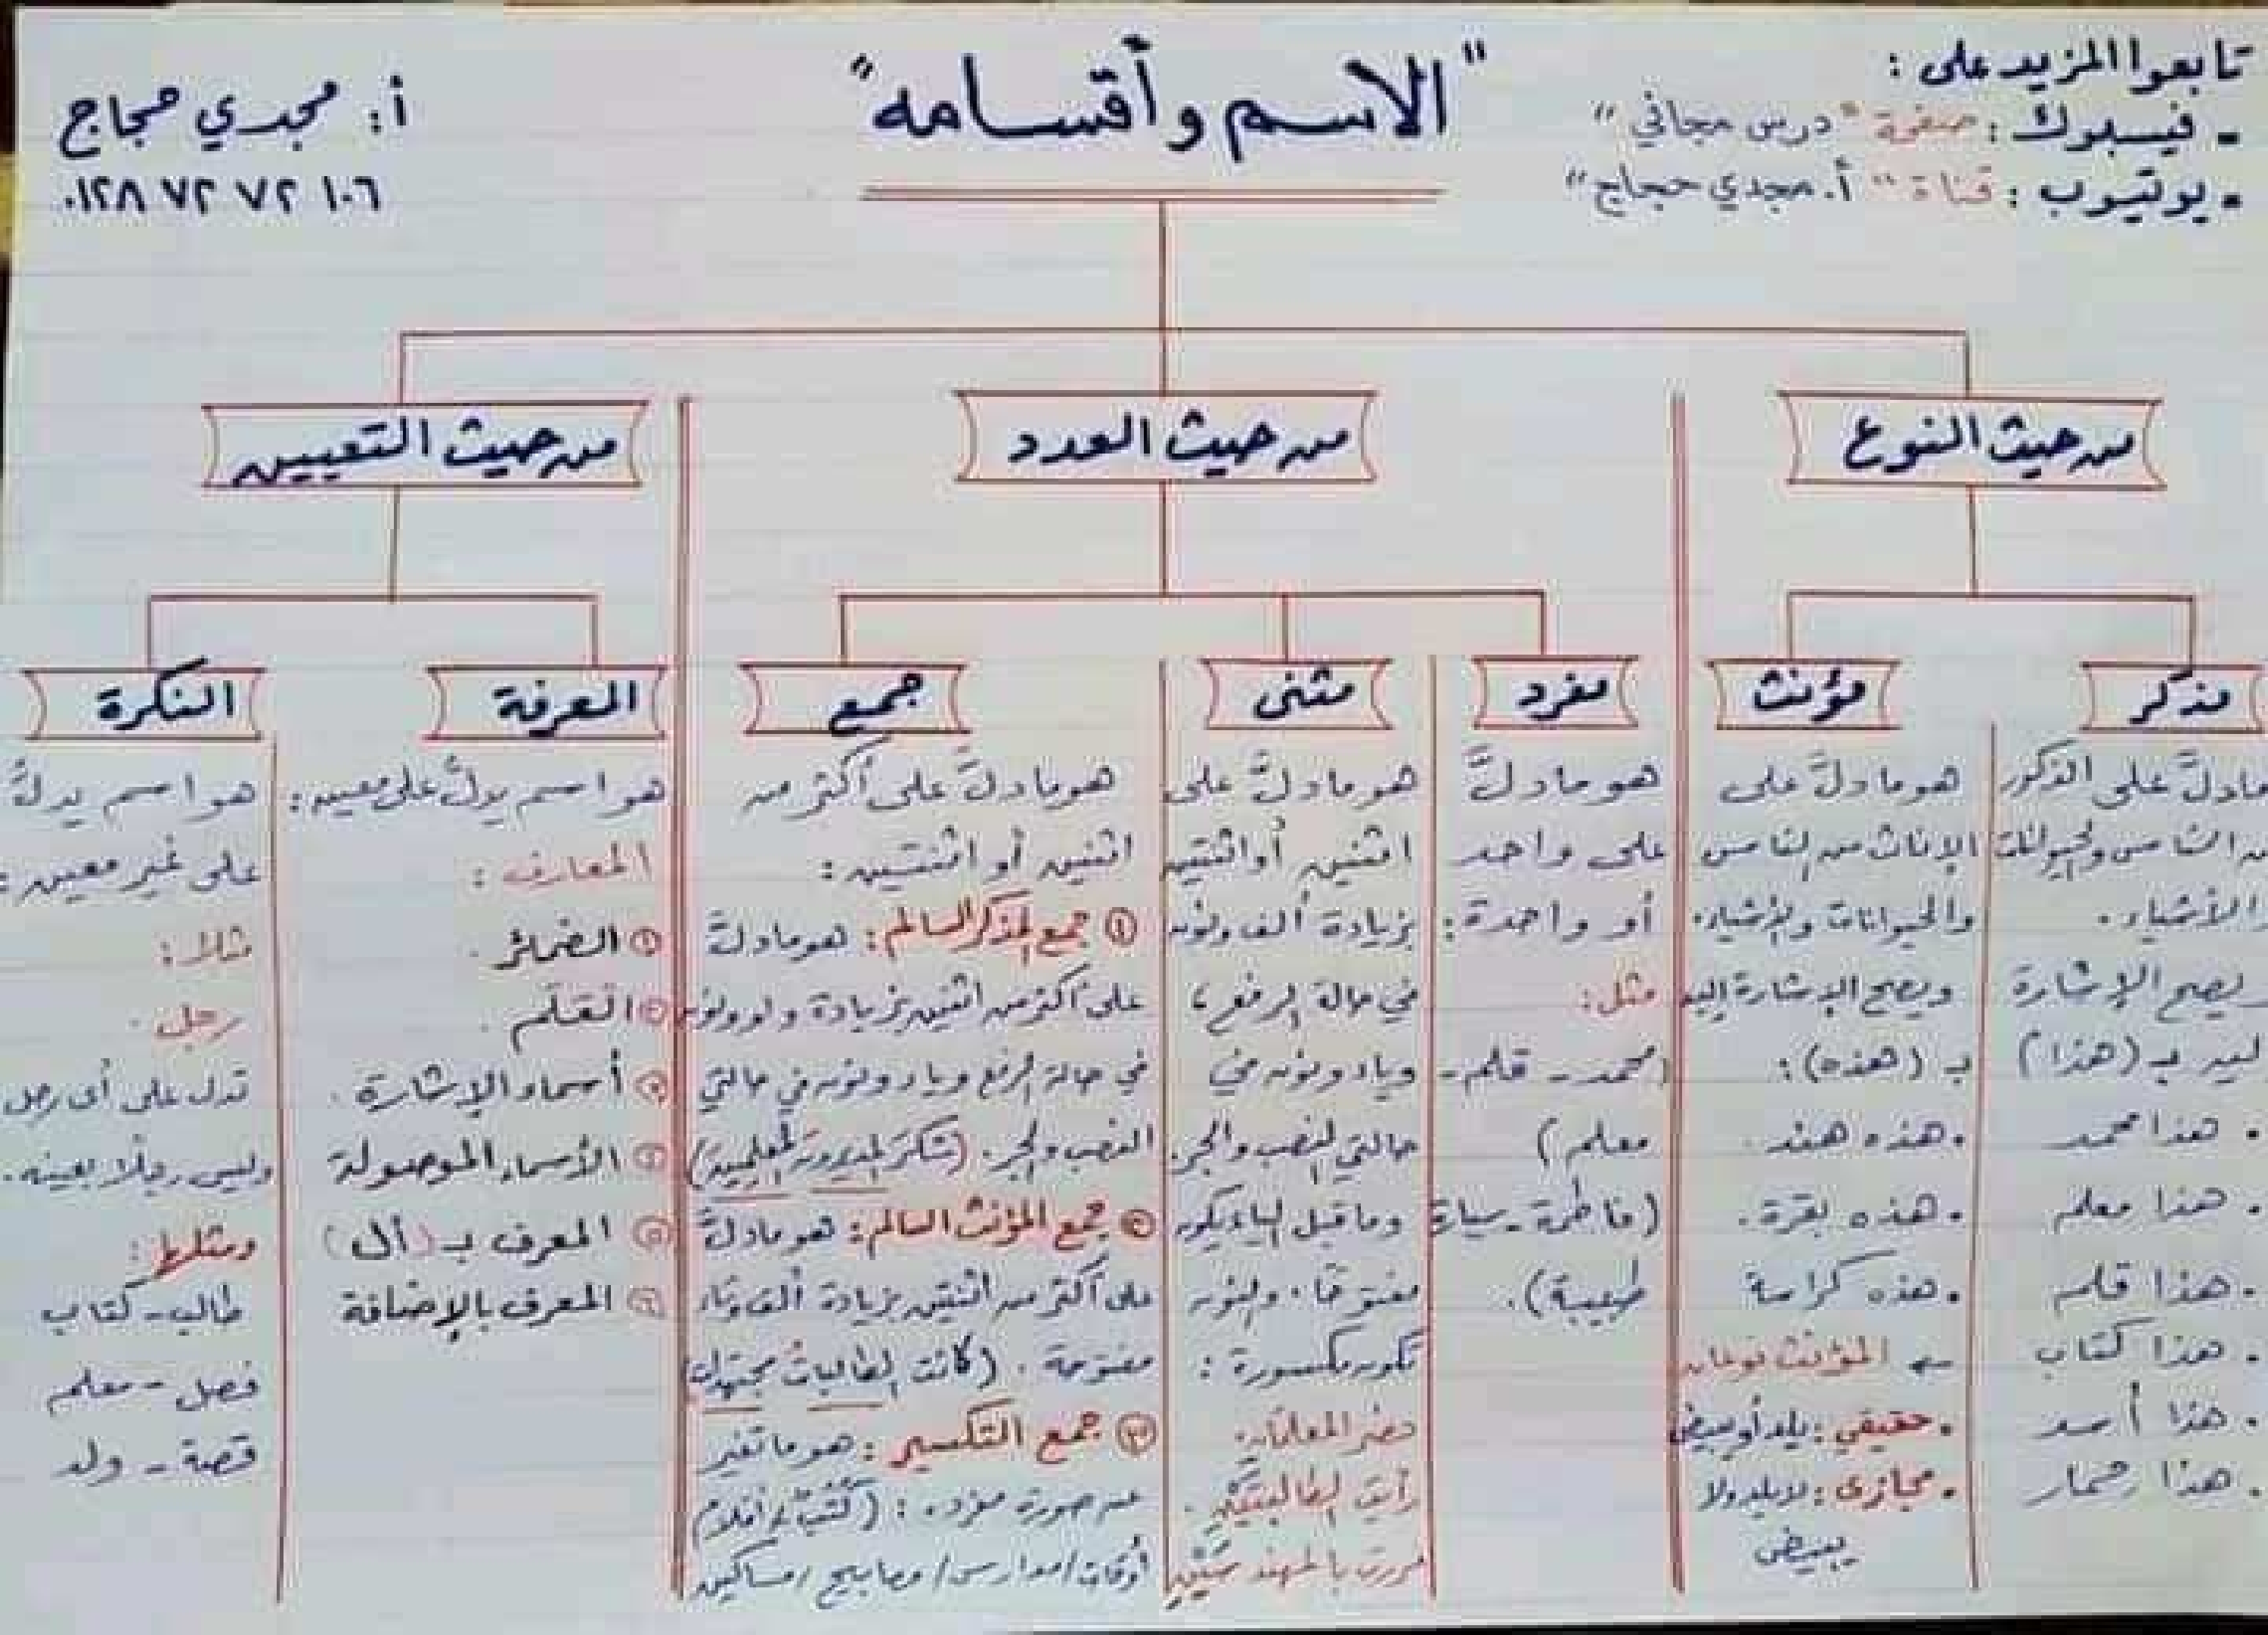 تابعوا المزيد على :
- فيسبوك : صفحة " درس مجاني "
- يوتيوب : قناة " أ. مجدي حجاج "
" الاسم وأقسامه "
أ: مجدي حجاج
٠١٢٨ ٧٢ ٧٢ ١٠٦
من حيث النوع
من حيث العدد
من حيث التعيين
مذكر
مادلَّ على الذكور
من الناس والحيوانات
والأشياء .
ويصح الإشارة
إليه بـ (هذا)
. هذا محمد
. هذا معلم
. هذا قلم
. هذا كتاب
. هذا أسد
. هذا حمار
مؤنث
هو مادلَّ على
الإناث من الناس
والحيوانات والأشياء.
ويصح الإشارة إليه
بـ (هذه) :
. هذه هند .
. هذه بقرة .
. هذه كراسة
المؤنث نوعان
. حقيقي : يلد أو يبيض
. مجازى : لا يلد ولا
يبيض
مفرد
هو مادلَّ
على واحد
أو واحدة :
مثل :
(محمد - قلم -
معلم )
( فاطمة - سيارة
طبيبة ) .
مثنى
هو مادلَّ على
اثنين أو اثنتين
بزيادة ألف ونون
في حالة الرفع ،
وياء ونون في
حالتي النصب والجر.
وما قبل الياء يكون
مفتوحًا . والنون
تكون مكسورة :
حضر المعلمانِ.
رأيت الطالبتَيْنِ .
مررت بالمهندسَيْنِ
جمع
هو مادلَّ على أكثر من
اثنين أو اثنتين :
① جمع المذكر السالم : هو مادلَّ
على أكثر من اثنين بزيادة واو ونون
في حالة الرفع وياء ونون في حالتي
النصب والجر . (شكرَ المديرونَ المعلمينَ)
② جمع المؤنث السالم : هو مادلَّ
على أكثر من اثنتين بزيادة ألف وتاء
مفتوحة . (كانت الطالباتُ مجتهداتٍ
③ جمع التكسير : هو ما تغير
عن صورة مفرده : ( كُتُب / أقلام
أوقات / مدارس / مصابيح / مساكين
المعرفة
هو اسم يدلُّ على معين :
المعارف :
① الضمائر .
② العَلَم .
③ أسماء الإشارة .
④ الأسماء الموصولة
⑤ المعرف بـ (أل)
⑥ المعرف بالإضافة
النكرة
هو اسم يدلُّ
على غير معين :
مثلا :
رجل .
تدل على أى رجل
وليس رجلًا بعينه .
ومثلها :
طالب - كتاب
فصل - معلم
قصة - ولد